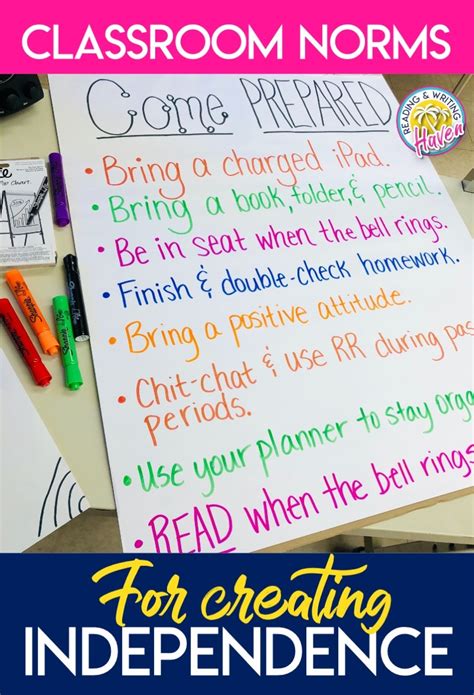 CLASSROOM NORMS
Come PREPARED
READING & WRITING
Haven
• Bring a charged iPad.
• Bring a book, folder, & pencil.
• Be in seat when the bell rings.
• Finish & double-check homework.
• Bring a positive attitude.
• Chit-chat & use RR during pas
periods.
• Use your planner to stay orga
• READ when the bell rings
For creating
INDEPENDENCE